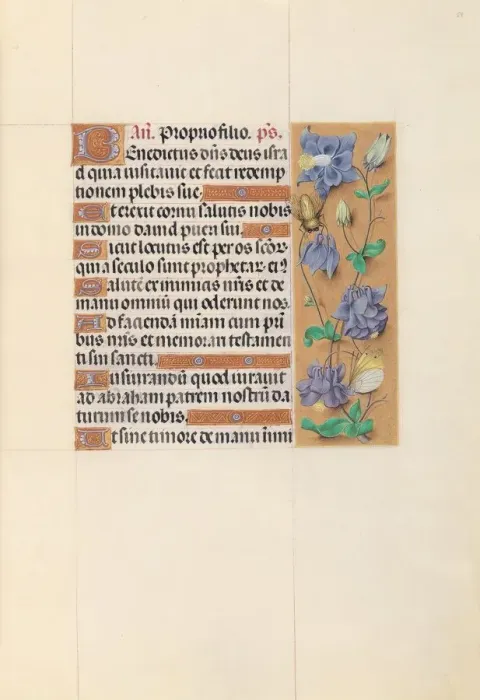 Añ. Proprio filio. p̄s.
Benedictus dñs deus isra
el quia uisitauit et fecit redemp
tionem plebis sue.
Et erexit cornu salutis nobis
in domo dauid pueri sui.
Sicut locutus est per os scōr
qui a seculo sunt prophetar. ei9
Salutē ex inimicis nr̄is et de
manu omniū qui oderunt nos.
Ad faciendā mīam cum pri
bus nr̄is et memorari testamen
ti sui sancti.
Iusiurandū quod iurauit
ad abraham patrem nostrū da
turum se nobis.
Ut sine timore de manu inimi